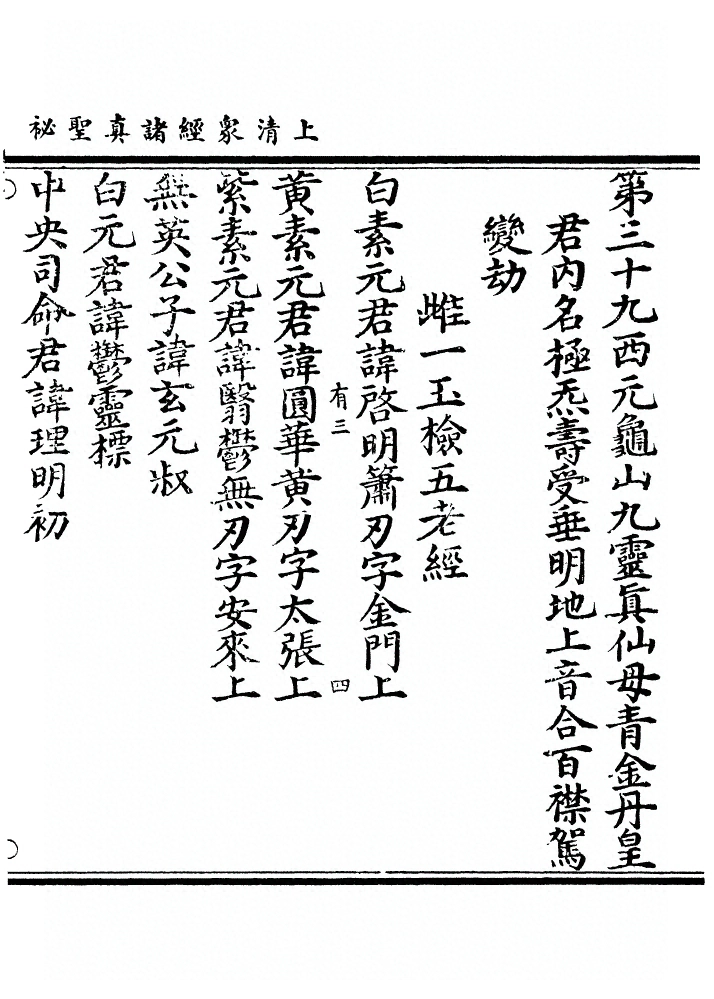 上清衆經諸真聖祕
第三十九西元龜山九靈眞仙母青金丹皇
君内名極炁壽受垂明地上音合百襟駕
變劫
雌一玉檢五老經
白素元君諱啓明簫刃字金門上
有三
四
黃素元君諱圓華黃刃字太張上
紫素元君諱翳鬱無刃字安來上
無英公子諱玄元叔
白元君諱鬱靈標
中央司命君諱理明初